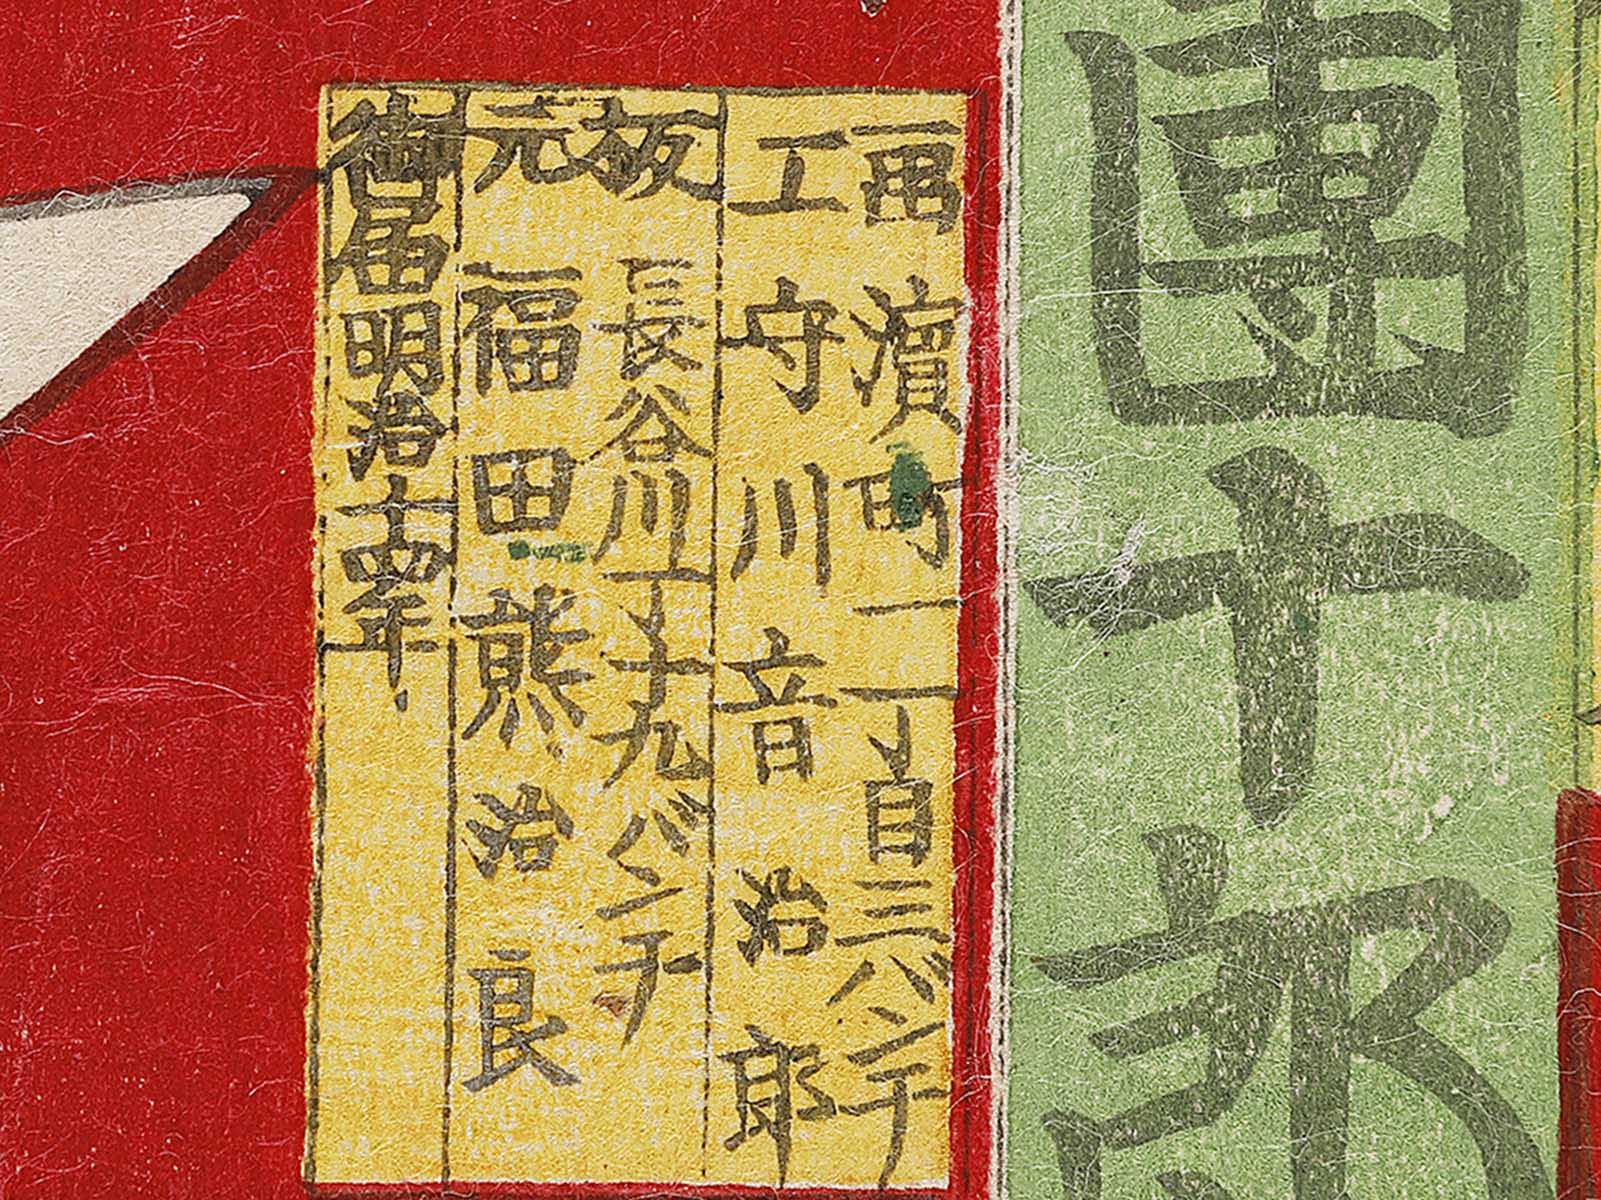 團十郎
画濱町一丁目三バンチ
工守川音治郎
板長谷川丁十九バンチ
元福田熊治良
御届明治十四年